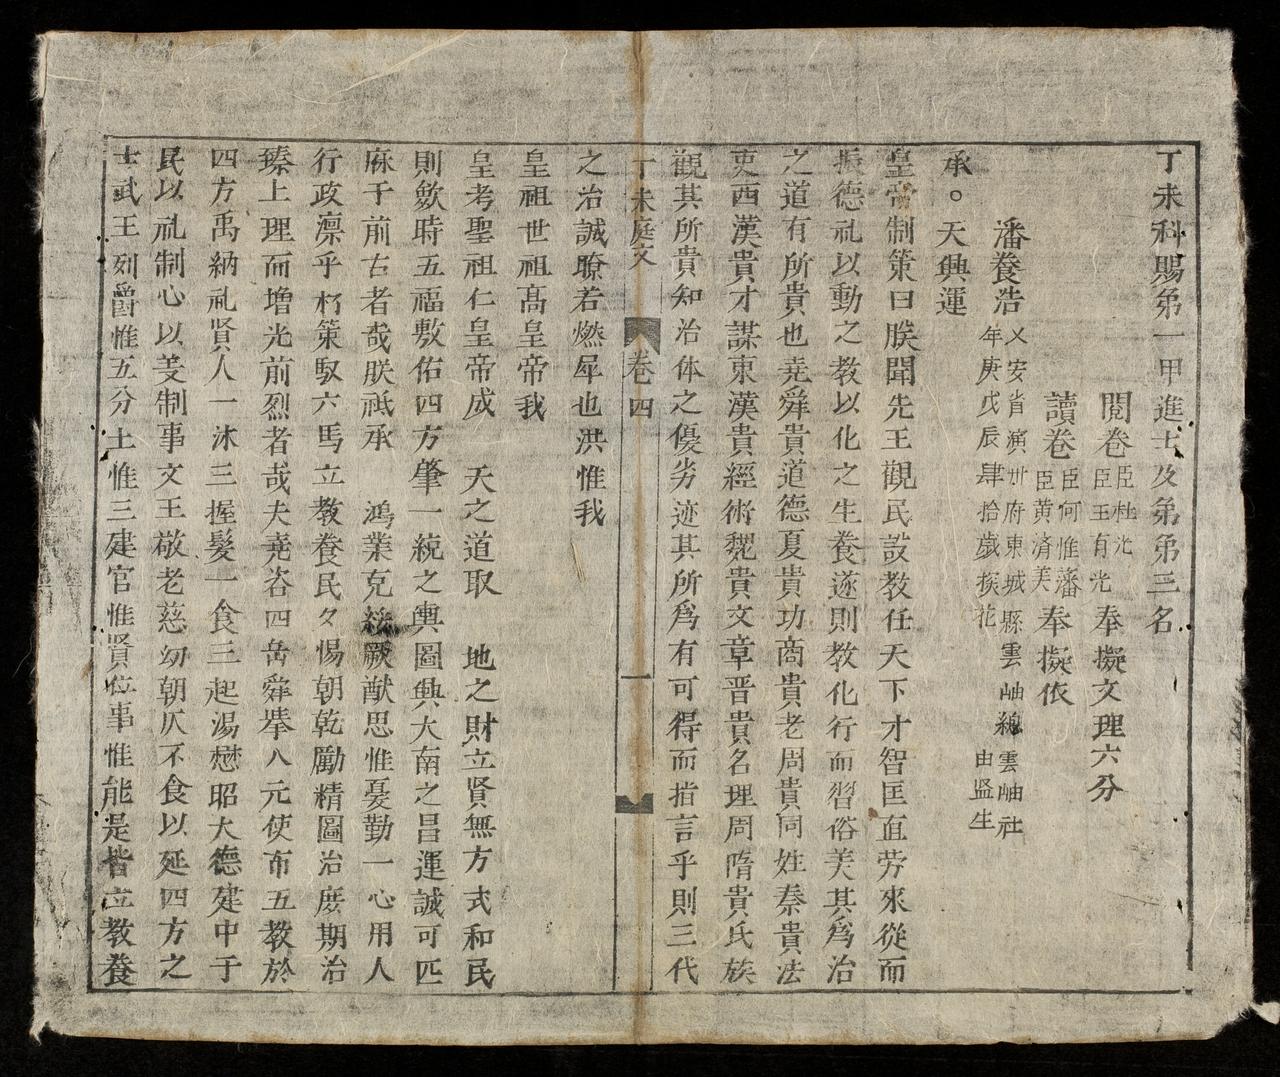 丁未科賜第一甲進士及第第三名
閱卷臣杜光臣王有光奉擬文理六分
讀卷臣何惟藩臣黃済美奉擬依
潘養浩
乂安省演州府東城縣雲岫總雲岫社
年庚戊辰肆拾歲探花
由監生
承。天興運
皇帝制策曰朕聞先王觀民設教任天下才智匡直劳來從而
振德礼以動之教以化之生養遂則教化行而習俗美其爲治
之道有所貴也堯舜貴道德夏貴功商貴老周貴同姓秦貴法
吏西漢貴才謀東漢貴經術魏貴文章晋貴名理周隋貴氏族
觀其所貴知治体之優劣迹其所爲有可得而指言乎則三代
丁未庭文
卷四
一
之治誠瞭若燃犀也洪惟我
皇祖世祖髙皇帝我
皇考聖祖仁皇帝成 天之道取 地之財立賢無方式和民
則斂時五福敷佑四方肇一統之輿圖興大南之昌運誠可匹
庥于前古者哉朕祗承 鴻業克綏厥猷思惟憂勤一心用人
行政凛乎朽策馭六馬立教養民夕惕朝乾勵精圖治庶期治
臻上理而增光前烈者哉夫堯咨四岳舜举八元使布五教於
四方禹納礼賢人一沐三握髮一食三起湯懋昭大德建中于
民以礼制心以義制事文王敬老慈幼朝仄不食以延四方之
士武王列爵惟五分土惟三建官惟賢位事惟能是皆立教養